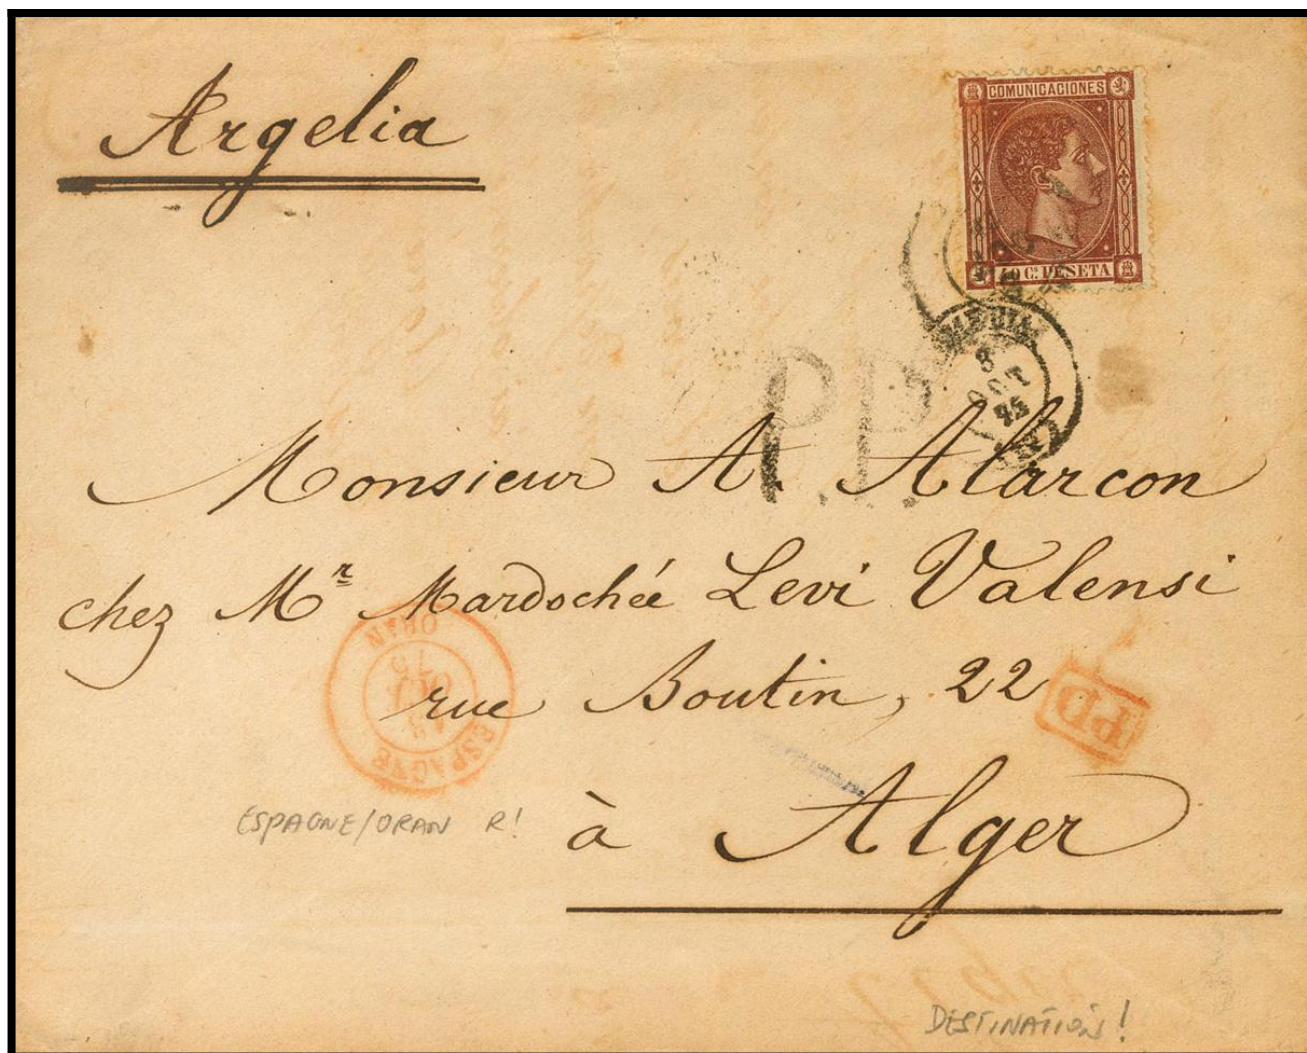 Argelia
COMUNICACIONES
40 Cs PESETA
8
OCT
75
P.P.
Monsieur A. Alarcon
chez Mr Mardochée Levi Valensi
rue Boutin, 22
à Alger
ORAN
OCT
75
ESPAGNE
PD
ESPAGNE/ORAN R!
DESTINATION!